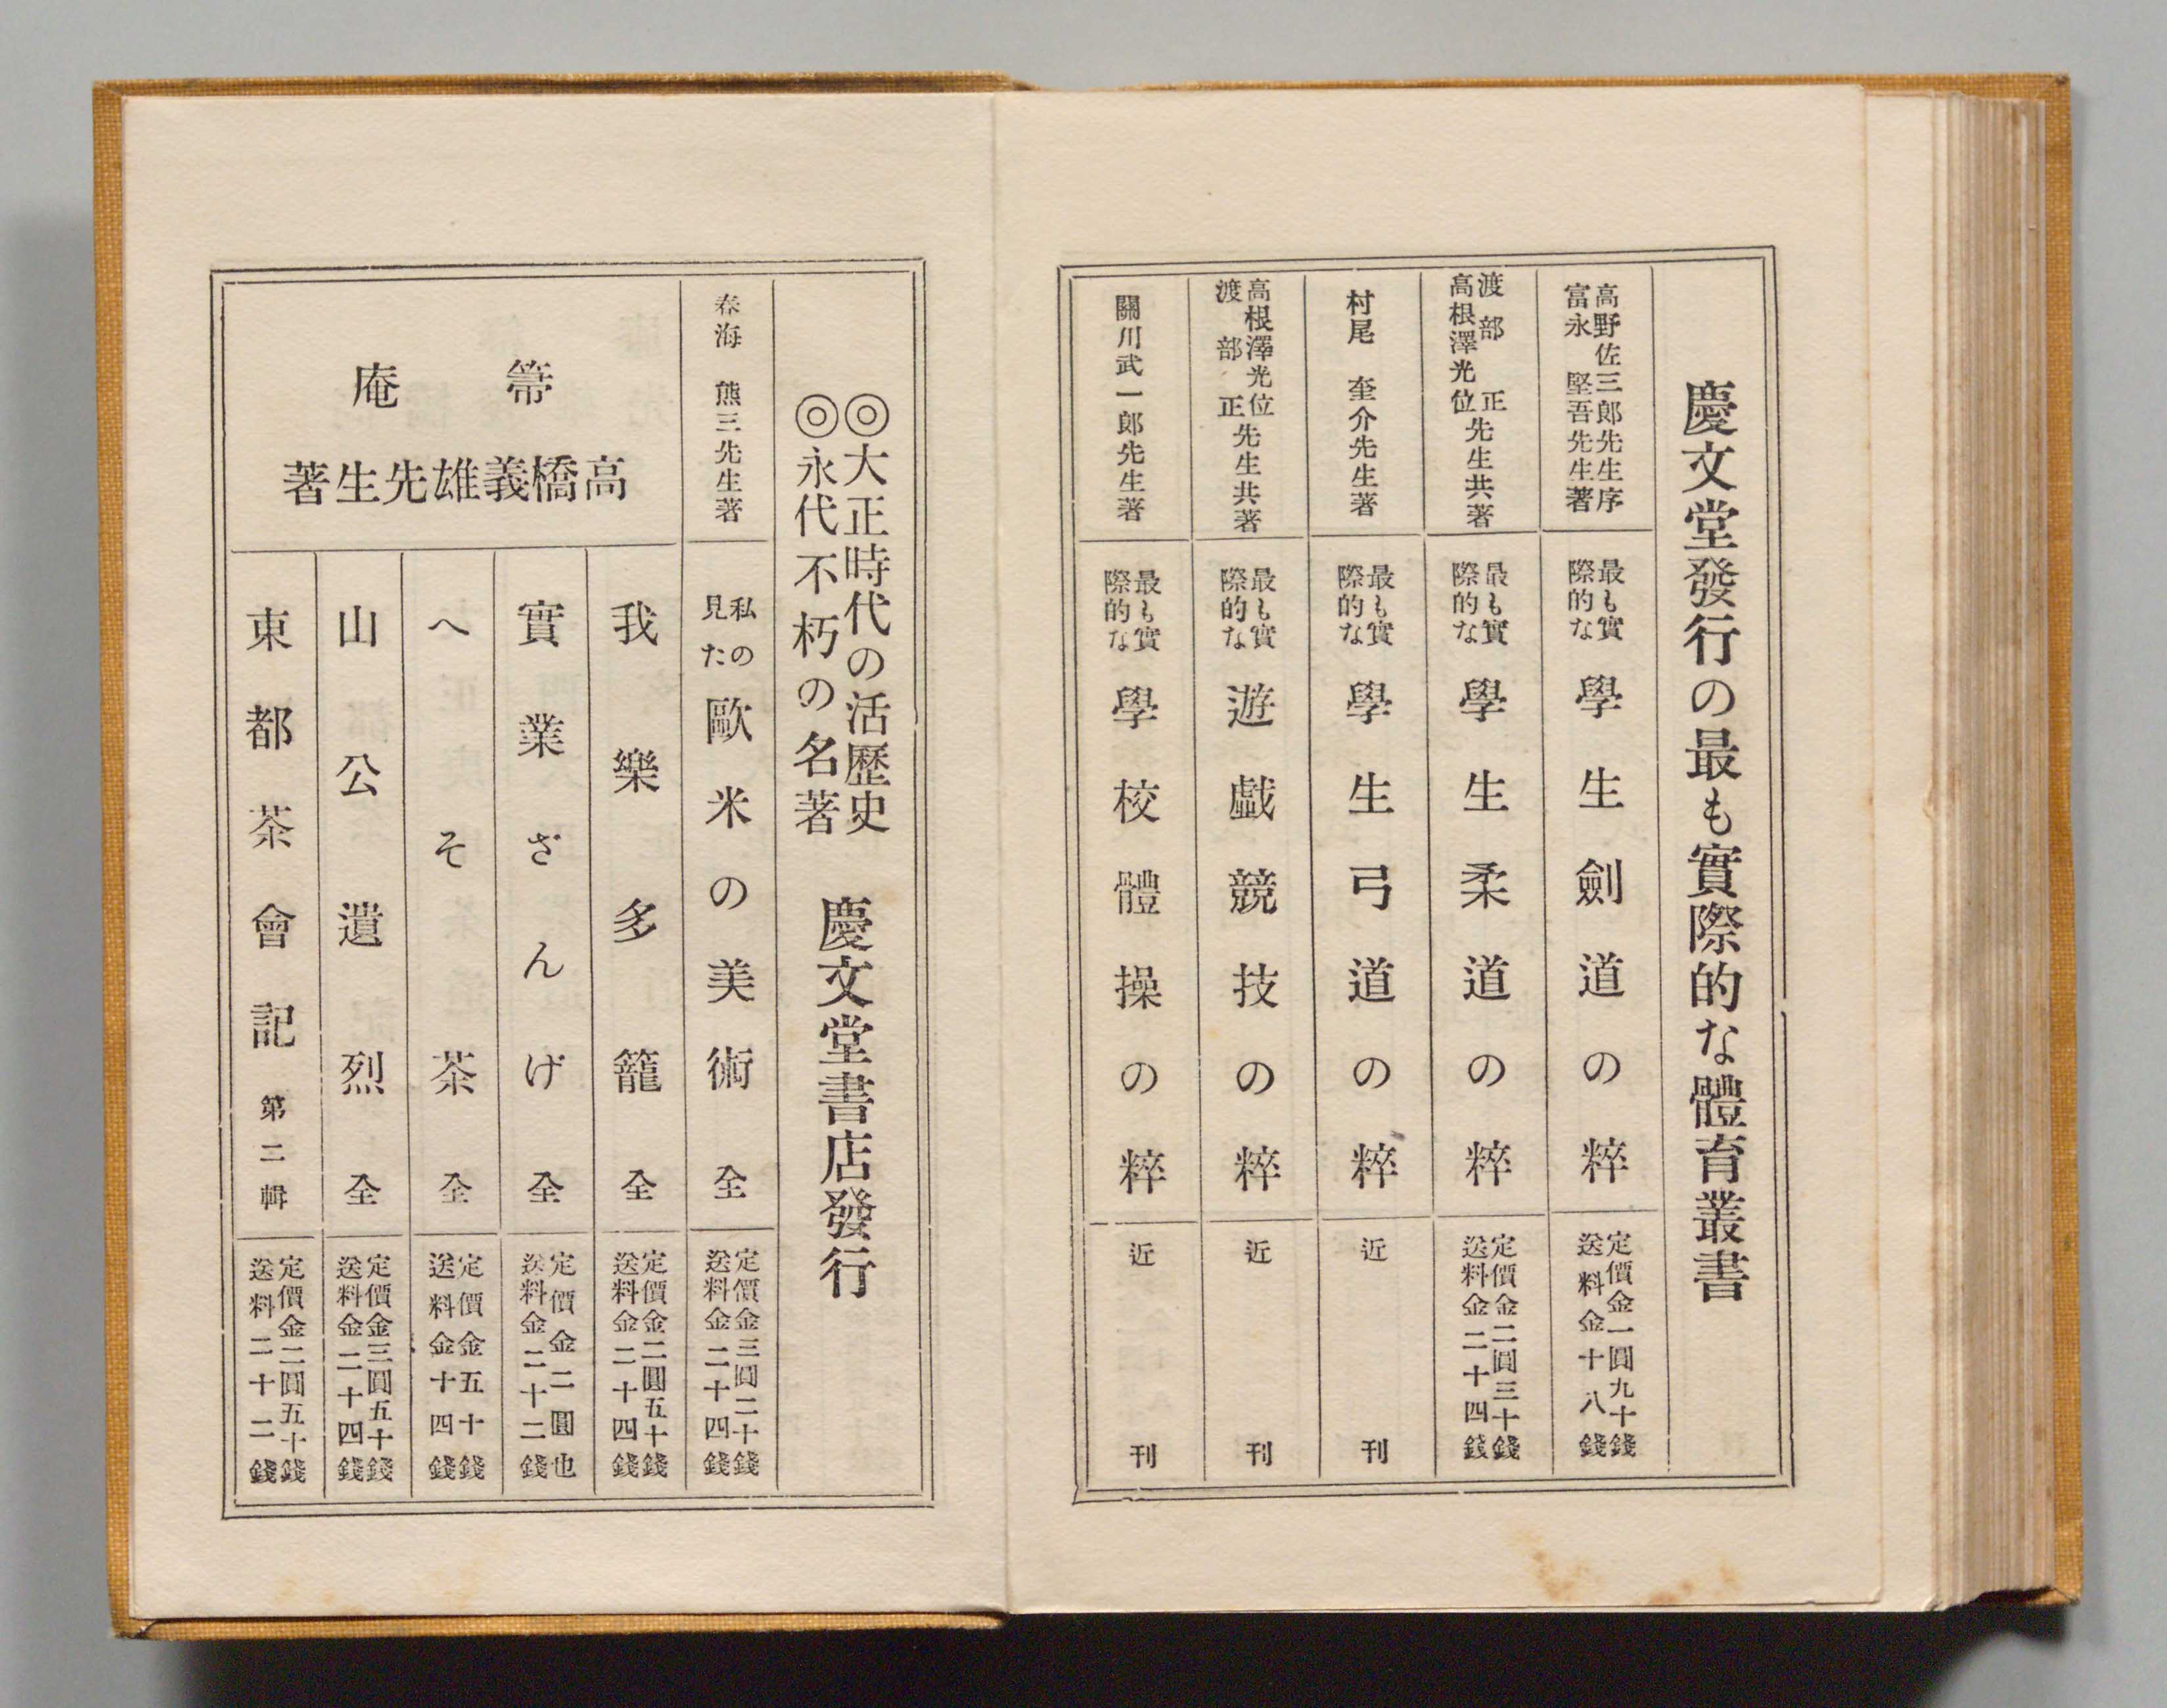 慶文堂發行の最も實際的な體育叢書
高野佐三郎先生序
富永堅吾先生著
最も實際的な
學生劍道の粹
定價金一圓九十錢
送料金十八錢
渡部正
高根澤光位
先生共著
最も實際的な
學生柔道の粹
定價金二圓三十錢
送料金二十四錢
村尾圭介先生著
最も實際的な
學生弓道の粹
近刊
高根澤光位
渡部正
先生共著
最も實際的な
遊戯競技の粹
近刊
關川武一郎先生著
最も實際的な
學校體操の粹
近刊
◎大正時代の活歷史
◎永代不朽の名著
慶文堂書店發行
春海熊三先生著
私の見た
歐米の美術 全
定價金三圓二十錢
送料金二十四錢
箒庵
高橋義雄先生著
我樂多籠 全
定價金二圓五十錢
送料金二十四錢
實業ざんげ 全
定價金二圓也
送料金二十二錢
へそ茶 全
定價金五十錢
送料金十四錢
山公遺烈 全
定價金三圓五十錢
送料金二十四錢
東都茶會記 第二輯
定價金二圓五十錢
送料二十二錢